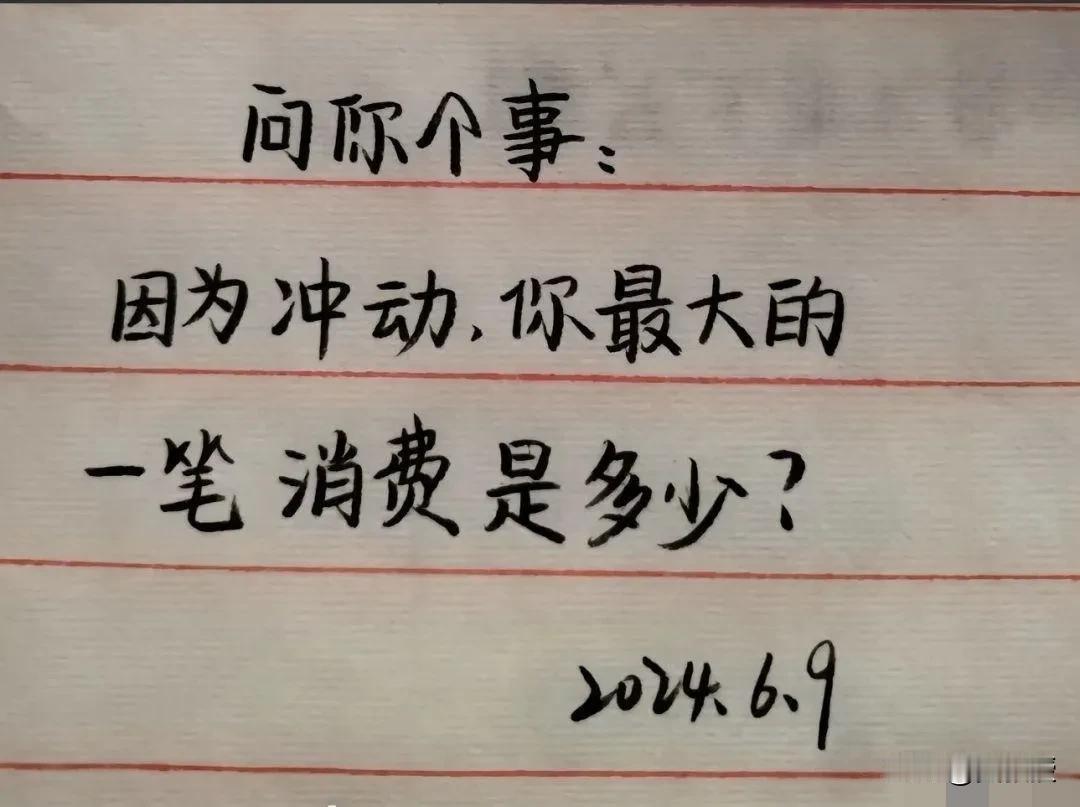 问你个事：
因为冲动，你最大的
一笔消费是多少？
2024.6.9